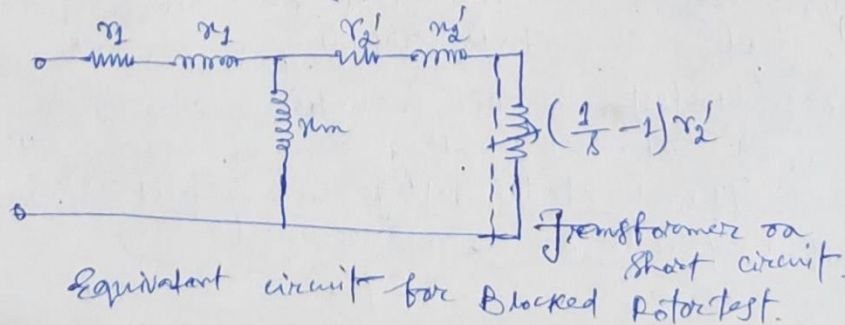 r1 x1 r2' x2'
xm
(1/s - 1) r2'
Transformer on
Short circuit.
Equivalant circuit for Blocked Rotor test.